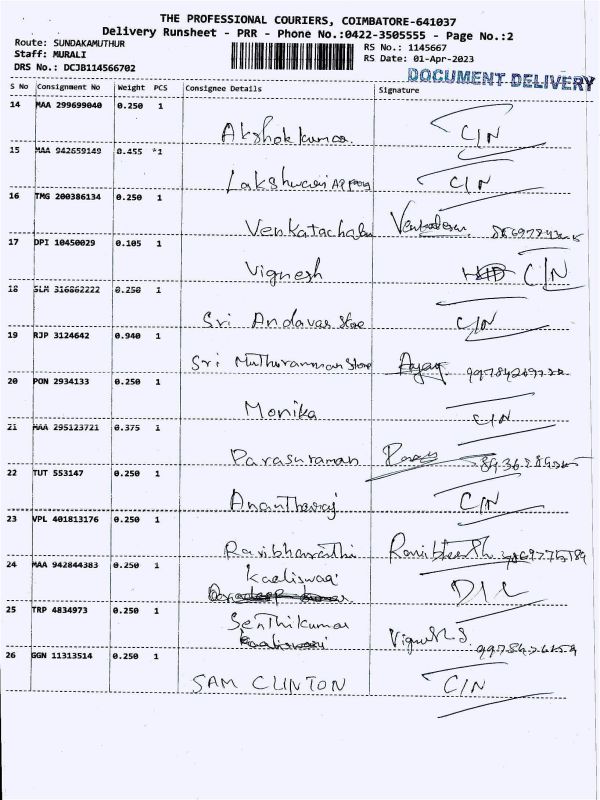 THE PROFESSIONAL COURIERS, COIMBATORE-641037
Delivery Runsheet - PRR - Phone No.:0422-3505555 - Page No.:2
Route: SUNDAKAMUTHUR RS No.: 1145667
Staff: MURALI RS Date: 01-Apr-2023
DRS No.: DCJB114566702 DOCUMENT DELIVERY
S No Consignment No Weight PCS Consignee Details Signature
14 MAA 299699040 0.250 1
Akshok kumar C/N
15 MAA 942659149 0.455 *1
Lakshwari C/N
16 TMG 200386134 0.250 1
Venkatachalam
17 DPI 10450029 0.105 1
Vignesh C/N
18 SLM 316862222 0.250 1
Sri Andavar Store C/N
19 RJP 3124642 0.940 1
Sri Muthuramman Store
20 PON 2934133 0.250 1
Monika C/N
21 MAA 295123721 0.375 1
Parasuraman
22 TUT 553147 0.250 1
Anantharaj C/N
23 VPL 401813176 0.250 1
Ravibharathi
24 MAA 942844383 0.250 1
Kaaliswari D/L
25 TRP 4834973 0.250 1
Senthilkumar
26 GGN 11313514 0.250 1
SAM CLINTON C/N